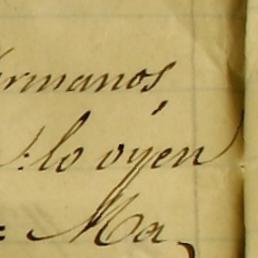 ermanos,
lo oyen
= Ma